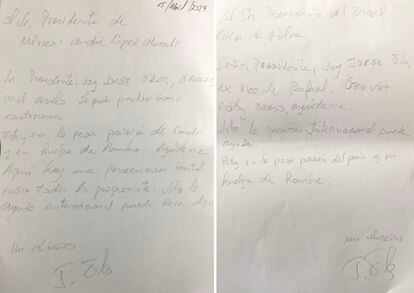 15/Abril/2024
Al Sr. Presidente de
México. Andrés López Obrador
Sr Presidente, soy JORGE GLAS,
por el asalo. Le pido perdón como
ecuatoriano.
Estoy en la peor prisión de Ecuador
y en huelga de hambre. Ayúdeme
Aquí hay una persecución brutal
contra todos los progresistas. Solo la
ayuda internacional puede hacer algo
un abrazo
J. Glas
Al Sr. Presidente del Brasil
Lula da Silva.
Señor Presidente, soy JORGE Glas
ex Vice de Rafael. Otra vez
estoy preso, ayúdeme.
Solo la presión Internacional puede
ayudar.
Estoy en la peor prisión del país y en
huelga de hambre.
un abrazo
J. Glas